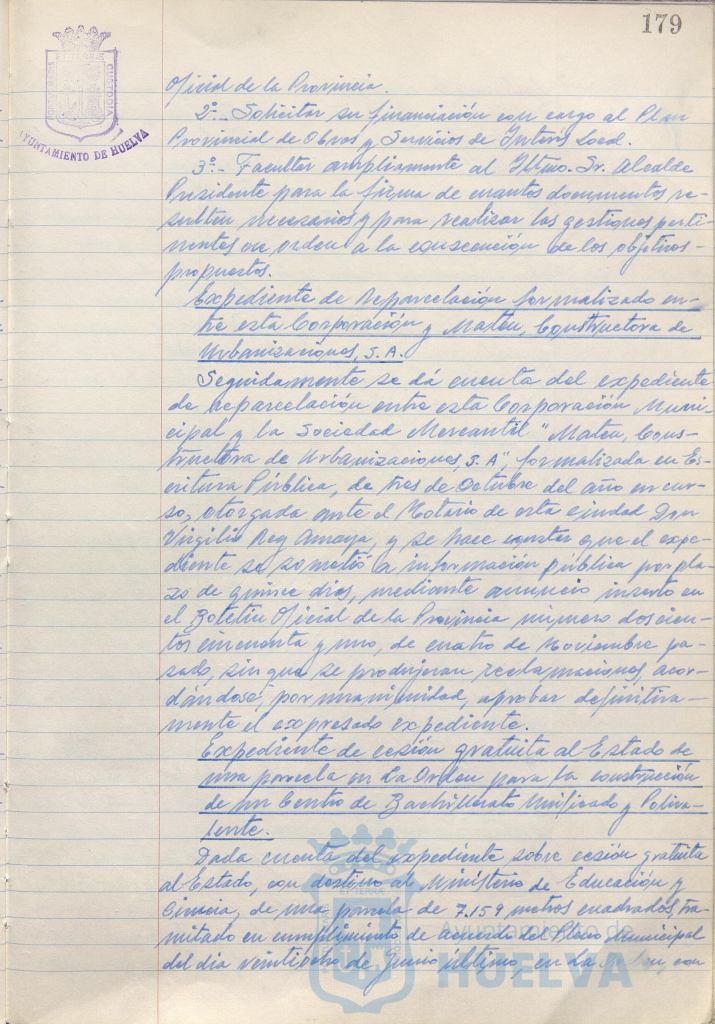 179
PORTUS MARIS ET TERRÆ CUSTODIA
AYUNTAMIENTO DE HUELVA
Oficial de la Provincia.
2º.- Solicitar su financiación con cargo al Plan
Provincial de Obras y Servicios de Interés Local.
3º.- Facultar ampliamente al Iltmo. Sr. Alcalde
Presidente para la firma de cuantos documentos re-
sulten necesarios y para realizar las gestiones perti-
nentes en orden a la consecución de los objetivos-
propuestos.
Expediente de Reparcelación formalizado en-
tre esta Corporación y Mateu, Constructora de
Urbanizaciones, S.A.
Seguidamente se dá cuenta del expediente
de reparcelación entre esta Corporación Muni-
cipal y la Sociedad Mercantil "Mateu, Cons-
tructora de Urbanizaciones, S.A", formalizada en Es-
critura Pública, de tres de Octubre del año en cur-
so, otorgada ante el Notario de esta ciudad Don
Virgilio Rey Amaya, y se hace constar que el expe-
diente se sometió a información pública por pla-
zo de quince dias, mediante anuncio inserto en
el Boletin Oficial de la Provincia número doscien-
tos cincuenta y uno, de cuatro de Noviembre pa-
sado, sin que se produjeran reclamaciones, acor-
dándose, por unanimidad, aprobar definitiva-
mente el expresado expediente.
Expediente de cesión gratuita al Estado de
una parcela en La Orden para la construcción
de un Centro de Bachillerato Unificado y Poliva-
lente.
Dada cuenta del expediente sobre cesión gratuita
al Estado, con destino al Ministerio de Educación y
Ciencia, de una parcela de 7.159 metros cuadrados, tra-
mitado en cumplimiento de acuerdo del Pleno Municipal
del dia veintiocho de Junio último, en La Orden, con
Ayuntamiento de
HUELVA